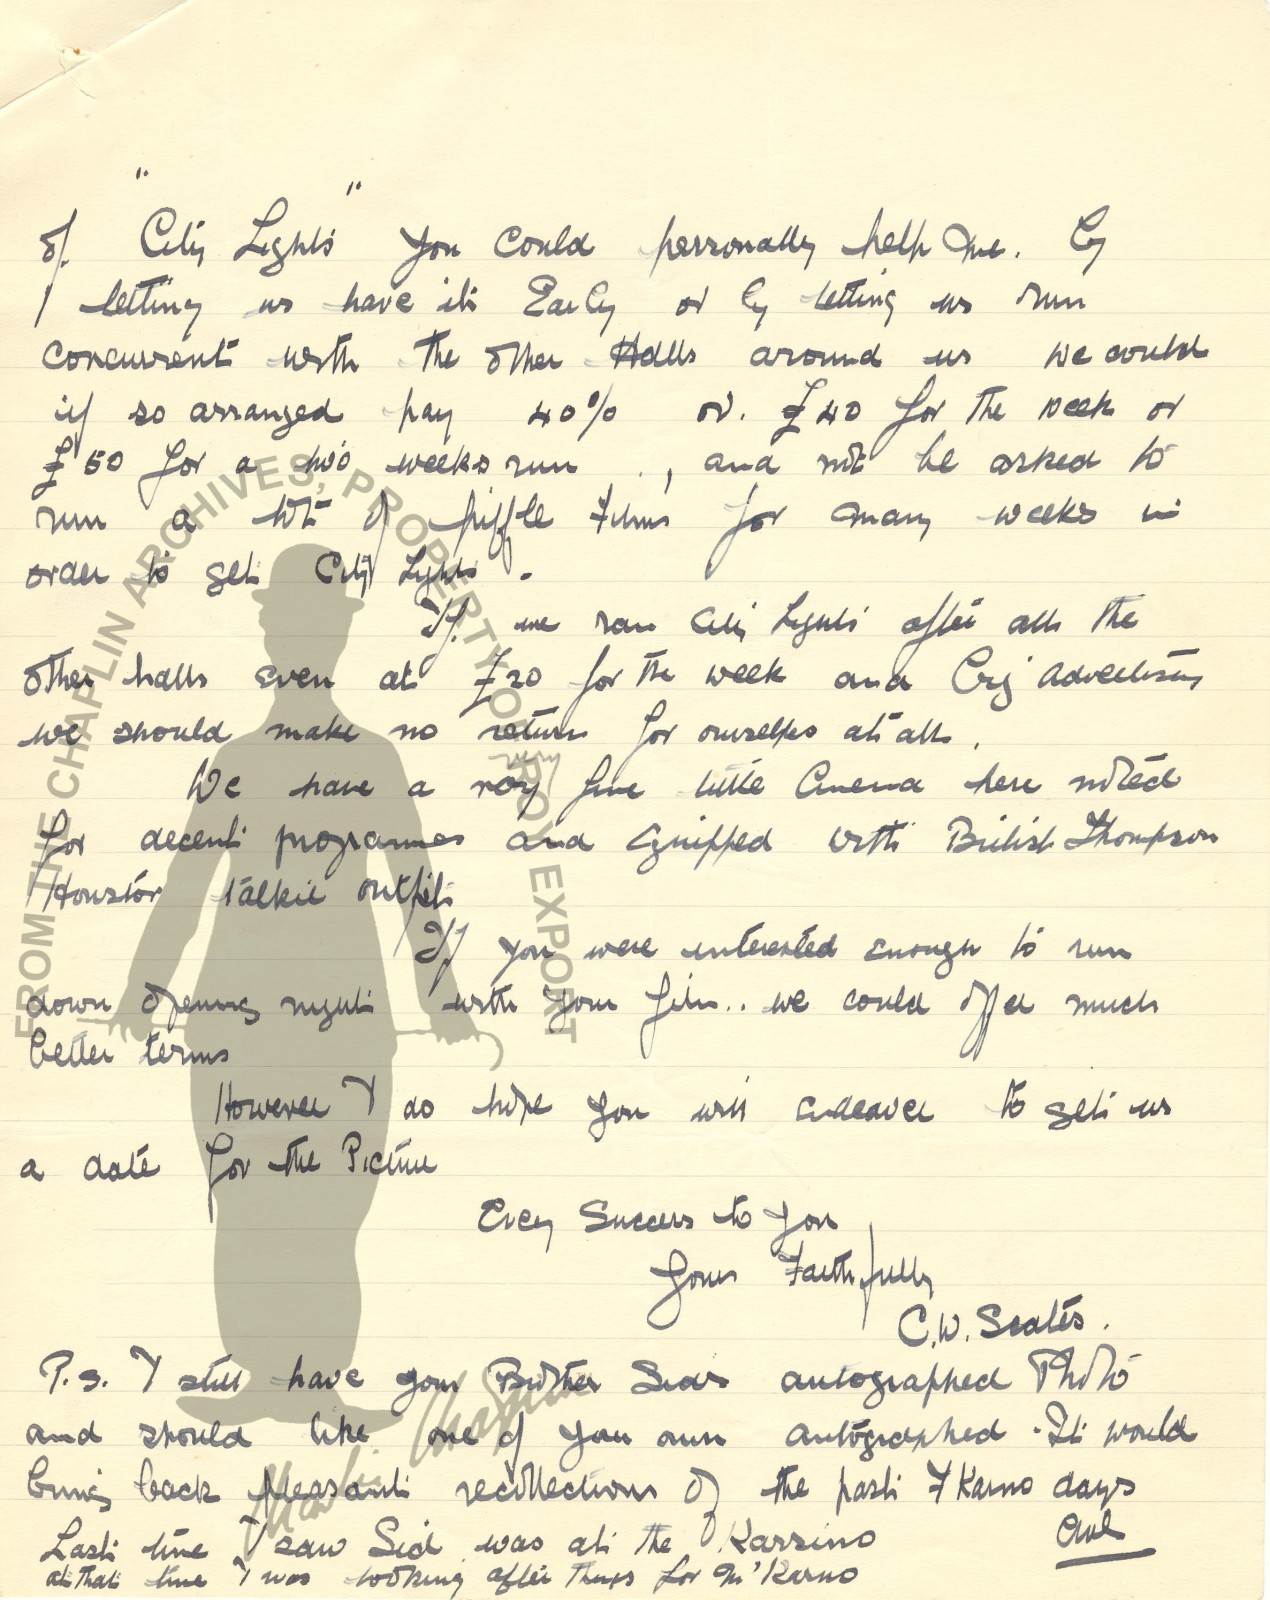 "
"
of. City Lights you could personally help me. By
letting us have it Early or by letting us run
concurrent with the other Halls around us we could
if so arranged pay 40% or. £40 for the week or
£50 for a two weeks run . , and not be asked to
run a lot of piffle Films for many weeks in
order to get City Lights.
If. we ran City Lights after all the
other halls even at £20 for the week and Big Advertising
we should make no return for ourselves at all.
We have a very fine little Cinema here noted
for decent programmes and equipped with British Thompson
Houston talkie outfit
If you were interested enough to run
down opening night with your film.. we could offer much
better terms
However I do hope you will endeaver to get us
a date for the Picture
Every Success to you
Yours Faithfully
C.W. Scates.
P.S. I still have your Brother Sids autographed Photo
and should like one of your own autographed. It would
bring back pleasant recollections of the past F Karno days
Last time I saw Sid was at the Karsino
at that time I was looking after things for Mr Karno
FROM THE CHAPLIN ARCHIVES, PROPERTY OF ROY EXPORT
Charlie Chaplin